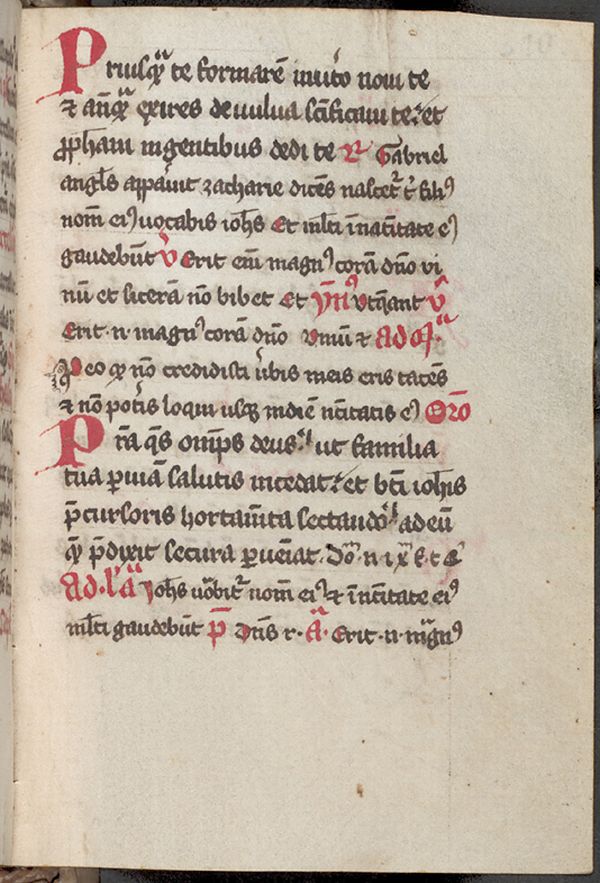 Priusqͣ te formarē in utͦo noui te
⁊ an̄qͣ exires de uulua sc̄ificaui te ⁊ et
ꝓpham in gentibus dedi te R Gabriel
angl̄s apparuit zacharie dicēs nascet᷑ t᷑ filiꝰ
nom̄ eiꝰ uocabis ioh̄s Et ml̄ti in natiuitate eꝰ
gaudebūt V Erit eīm magnꝰ corā dn̄o vi
nū et sicerā nō bibet Et ymꝰ Vt queant V
Erit .n. magnꝰ corā dn̄o Vinum ⁊ ad cͣ
Pro eo qͣ nō credidisti ūbis meis eris tacēs
⁊ nō pot̄is loqui usqꝫ in diem natiuitatis eꝰ Orō
Pr̄a qs̄ omp̄s deus ut familia
tua ꝑ uiā salutis incedat ⁊ et bt̄i ioh̄is
p̄cursoris hortam̄ta sectando ad eū
qͣ p̄dixit secura ꝑueniat. Dō n i x f t
Ad lͣ Ioh̄s uōbit᷑ nom̄ eiꝰ ⁊ in natiuitate eiꝰ
ml̄ti gaudebūt p̄ Dn̄s r. A. Erit .n. mͣgnꝰ